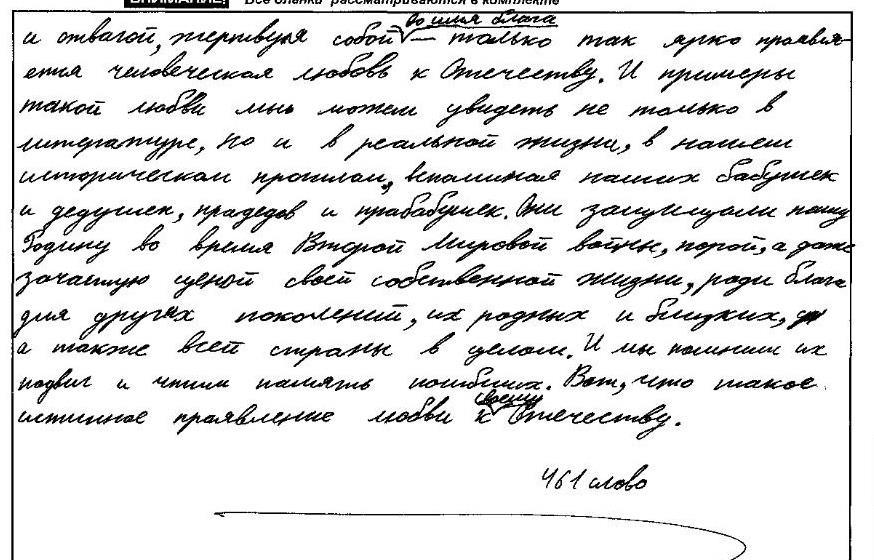 ВНИМАНИЕ! Все бланки рассматриваются в комплекте
во имя блага
и отвагой, жертвуя собой — только так ярко проявля-
ется человеческая любовь к Отечеству. И примеры
такой любви мы можем увидеть не только в
литературе, но и в реальной жизни, в нашем
историческом прошлом, вспоминая наших бабушек
и дедушек, прадедов и прабабушек. Они защищали нашу
Родину во время Второй Мировой войны, порой, а даже
зачастую ценой своей собственной жизни, ради блага
для других поколений, их родных и близких,
а также всей страны в целом. И мы помним их
подвиг и чтим память погибших. Вот, что такое
своему
истинное проявление любви к Отечеству.
461 слово